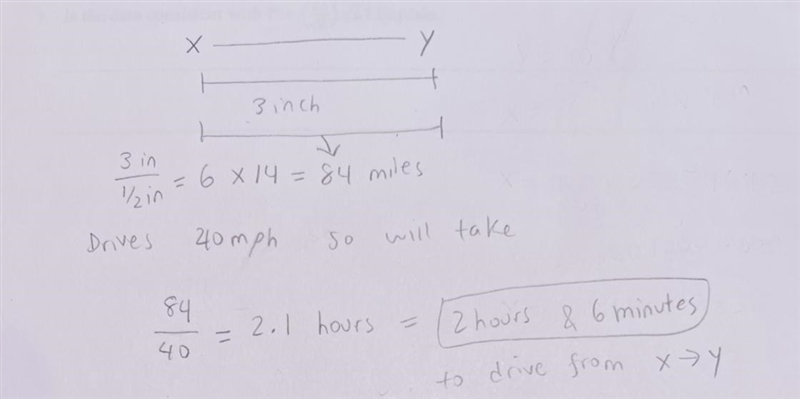 X Y
3 inch
3 in / 1/2 in = 6 x 14 = 84 miles
Drives 40mph so will take
84 / 40 = 2.1 hours = 2 hours & 6 minutes
to drive from x → y